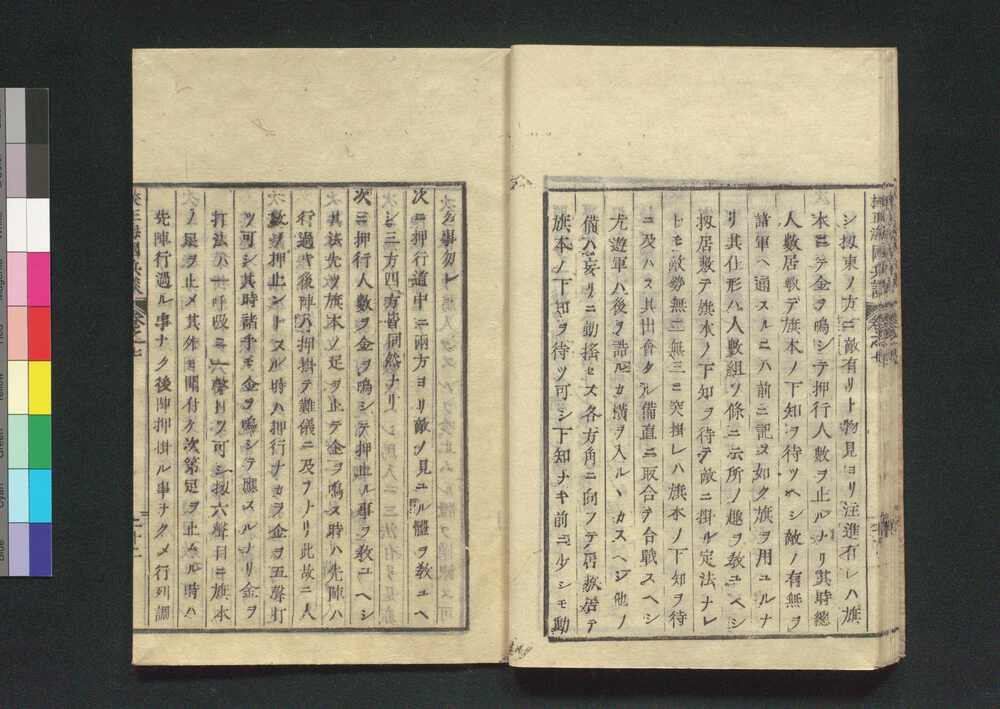 シ扨東ノ方ニ敵有リト物見ヨリ注進有レハ旗
本ニテ金ヲ鳴シテ押行人数ヲ止ルナリ其時總
人数居敷テ旗本ノ下知ヲ待ツヘシ敵ノ有無ヲ
諸軍ヘ通スルニハ前ニ記ス如ク旗ヲ用ユルナ
リ其仕形ハ人数組ノ條ニ云所ノ趣ヲ教ユヘシ
扨居敷テ旗本ノ下知ヲ待テ敵ニ掛ル定法ナレ
トモ敵勢無二無三ニ突掛レハ旗本ノ下知ヲ待
ニ及ハス其出會タル備直ニ取合テ合戦スヘシ
尤遊軍ハ後ヲ詰ルカ横ヲ入ルヽカスヘシ他ノ
備ハ妄リニ動揺セス各方角ニ向フテ居敷居テ
旗本ノ下知ヲ待ツ可シ下知ナキ前ニ少シモ動
ク事勿レ
次ニ押行道中ニ兩方ヨリ敵ノ見ユル體ヲ教ユヘ
シ三方四方皆同然ナリ
次ニ押行人数ヲ金ヲ鳴シテ押止ル事ヲ教ユヘシ
其法先ツ旗本ノ足ヲ止テ金ヲ鳴ス時ハ先陣ハ
行過キ後陣ハ押掛テ難儀ニ及フナリ此故ニ人
数ヲ押止ントスル時ハ押行ナカラ金ヲ五聲打
ツ可シ其時諸手モ金ヲ鳴シテ應スルナリ金ヲ
打法ハ一呼吸ニ一聲打ツ可シ扨六聲目ニ旗本
ノ足ヲ止メ其外モ聞付ケ次第足ヲ止ムル時ハ
先陣行過ル事ナク後陣押掛ル事ナクメ行列調